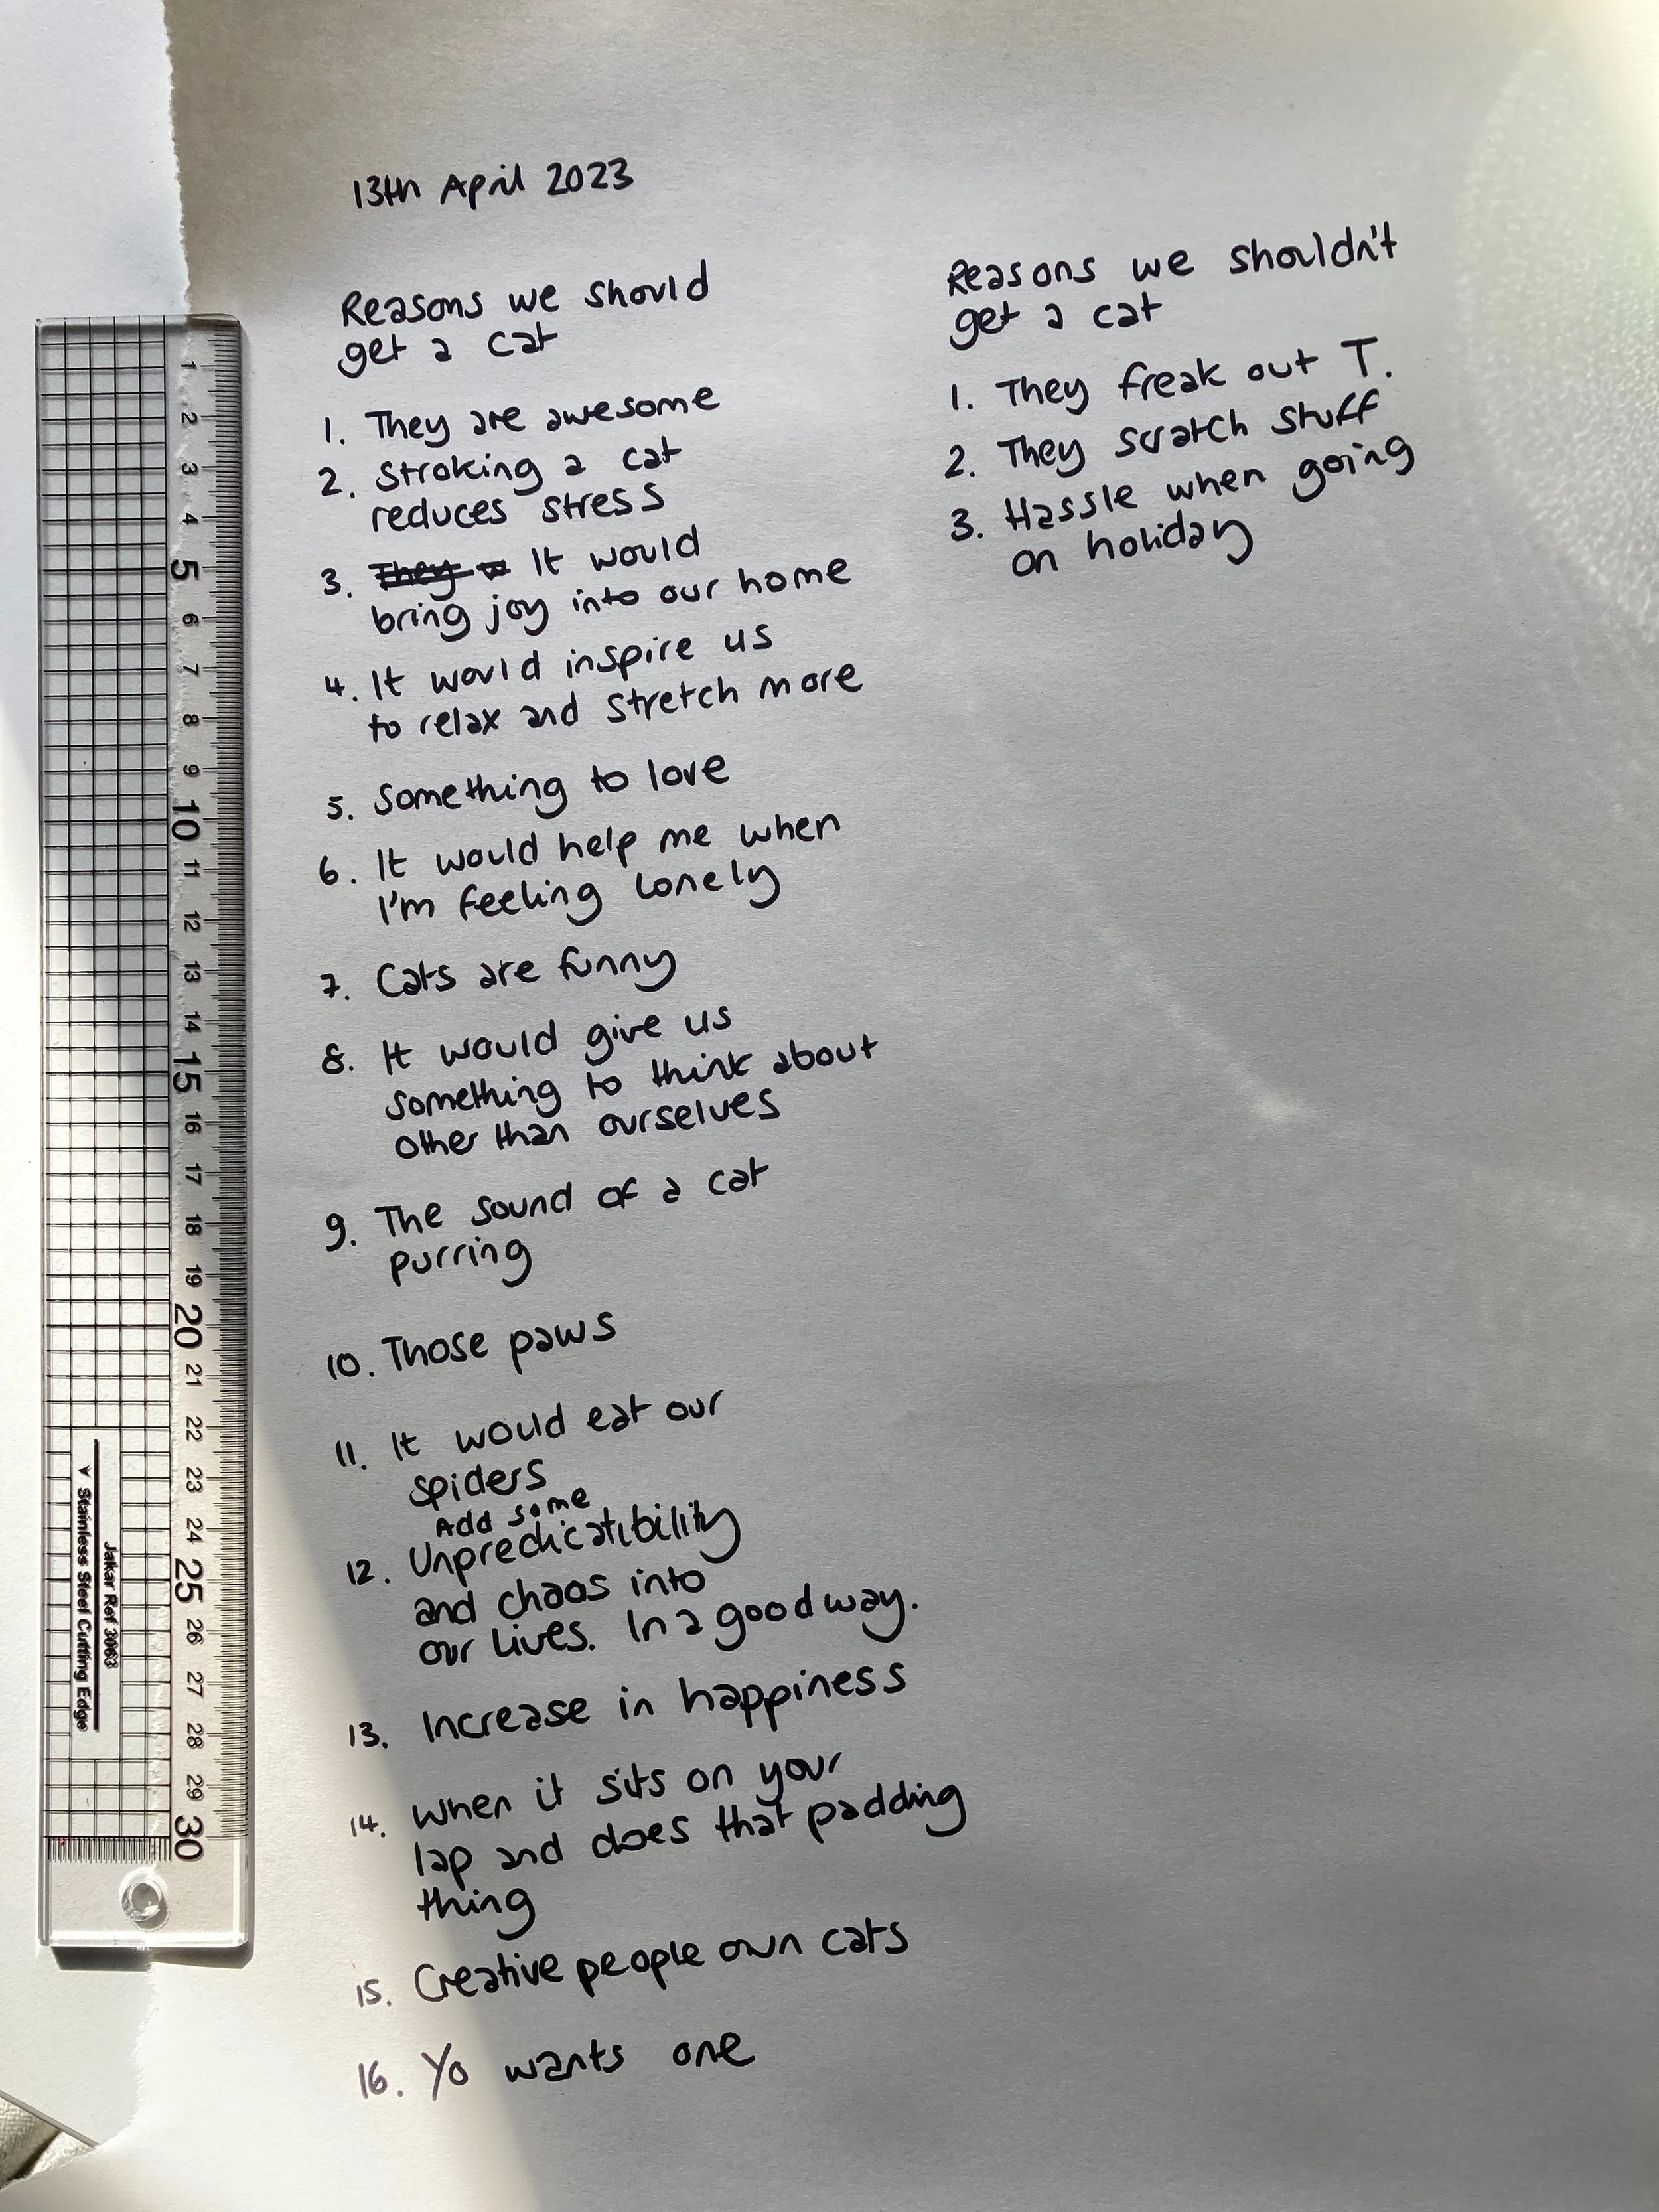 13th April 2023
Reasons we should
get a cat
1. They are awesome
2. Stroking a cat
reduces stress
3. They w It would
bring joy into our home
4. It would inspire us
to relax and stretch more
5. Something to love
6. It would help me when
I'm feeling lonely
7. Cats are funny
8. It would give us
something to think about
other than ourselves
9. The sound of a cat
purring
10. Those paws
11. It would eat our
spiders
Add some
12. Unpredicatibility
and chaos into
our lives. In a good way.
13. Increase in happiness
14. When it sits on your
lap and does that padding
thing
15. Creative people own cats
16. Yo wants one
Reasons we shouldn't
get a cat
1. They freak out T.
2. They scratch stuff
3. Hassle when going
on holiday
1
2
3
4
5
6
7
8
9
10
11
12
13
14
15
16
17
18
19
20
21
22
23
24
25
26
27
28
29
30
Jakar Ref 3063
Stainless Steel Cutting Edge